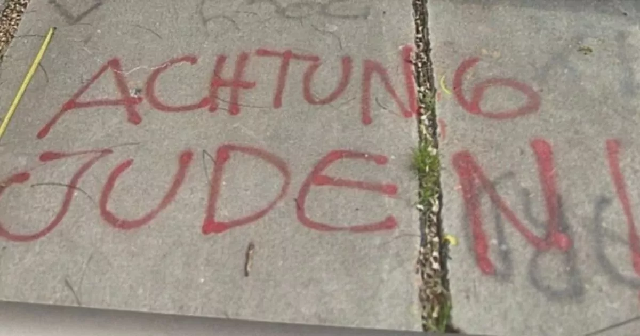 ACHTUNG
JUDEN!